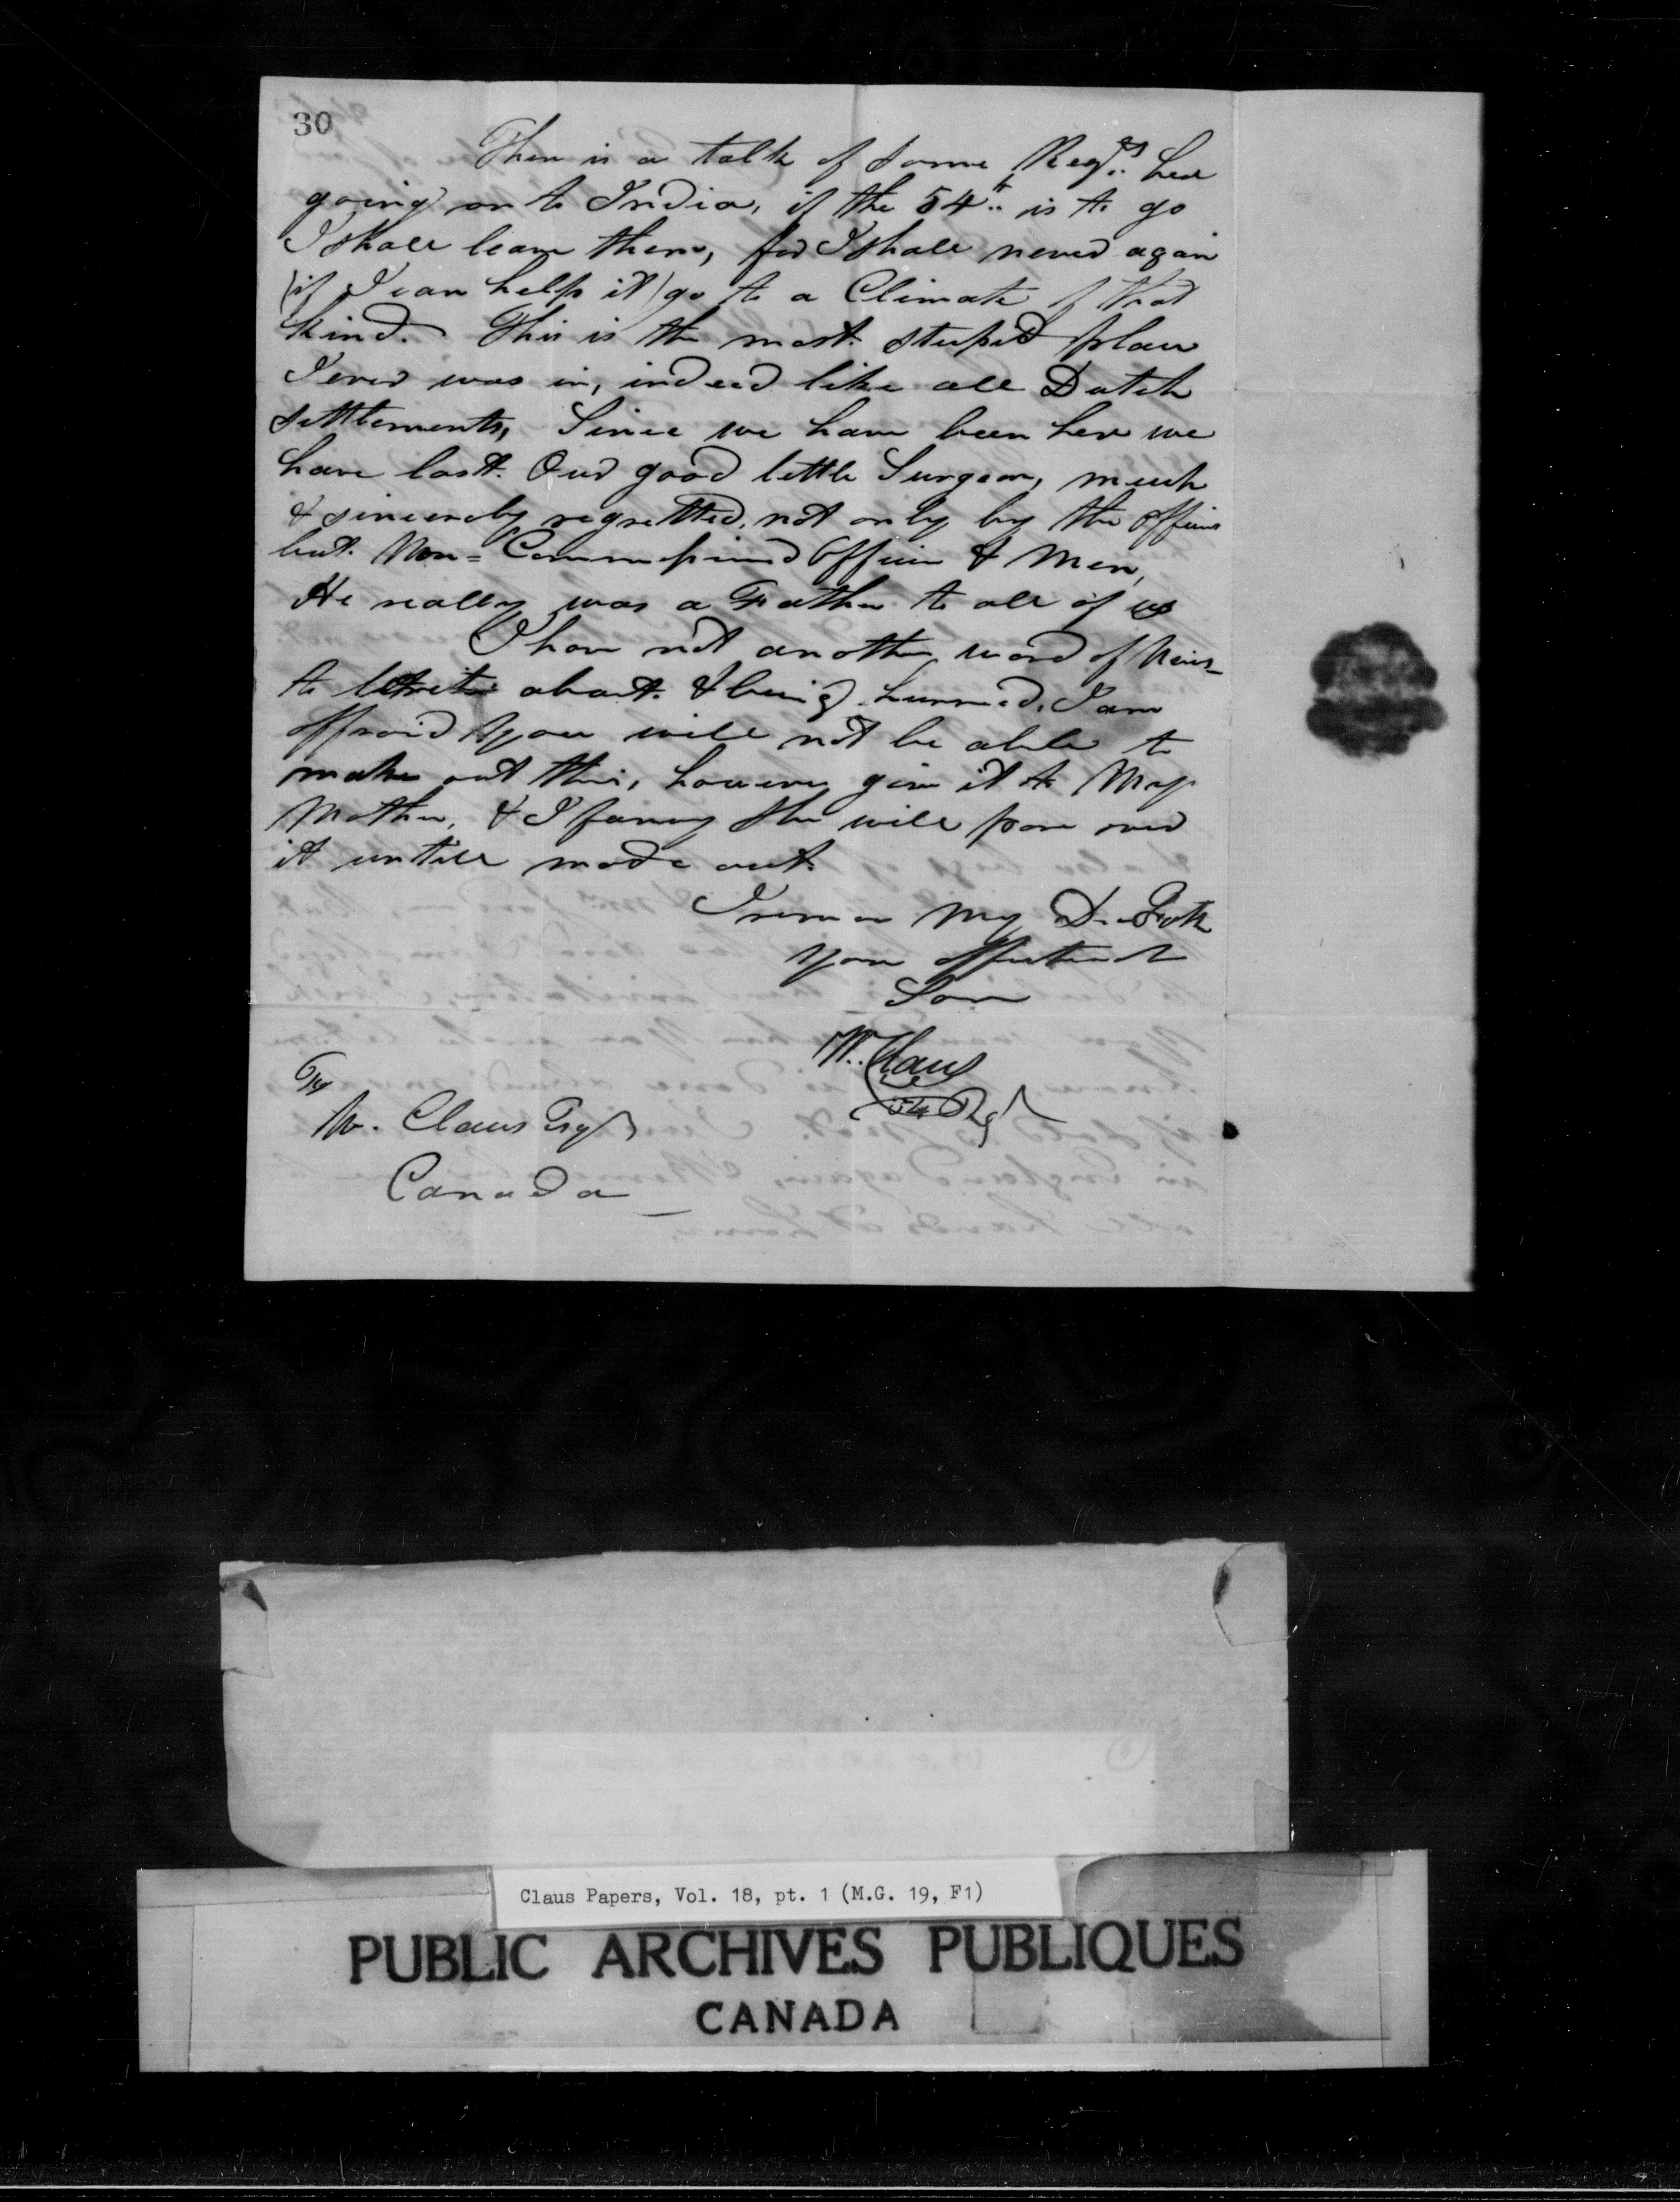 30
There is a talk of some Regts. here
going on to India, if the 54th is to go
I shall leave them, for I shall never again
(if I can help it) go to a Climate of that
kind. This is the most stupid place
I ever was in, indeed like all Dutch
settlements, Since we have been here we
have lost Our good little Surgeon, much
& sincerely regretted, not only by the officers
but Non=Commissioned Officers & Men,
He really was a Father to all of us
I have not another word of News
to write about & being hurried, I am
affraid you will not be able to
make out this, however give it to My
Mother, & I fancy she will pore over
it untill made out.
I remain My Dr. Fath
your affectionate
Son
W. Claus
54 Regt
To
W. Claus Esqr
Canada
Claus Papers, Vol. 18, pt. 1 (M.G. 19, F1)
PUBLIC ARCHIVES PUBLIQUES
CANADA